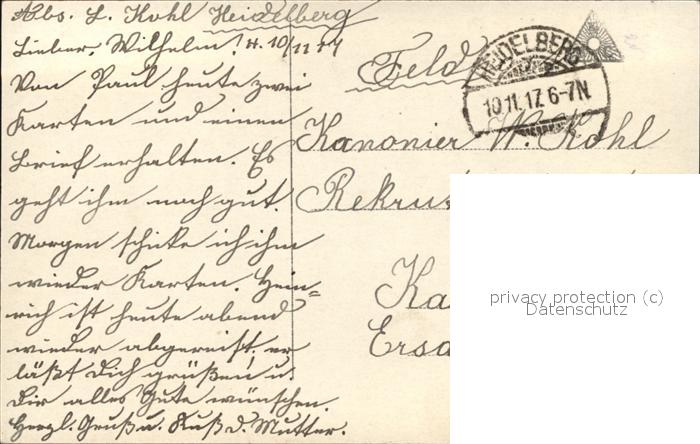 Abs. L. Kohl Heidelberg
Lieber Wilhelm! H. 10/11 17
Von Paul heute zwei
Karten und einen
Brief erhalten. Es
geht ihm noch gut.
Morgen schicke ich ihm
wieder Karten. Hein=
rich ist heute abend
wieder abgereist, er
läßt Dich grüßen u.
Dir alles Gute wünschen.
Herzl. Gruß u. Kuß d. Mutter.
Feld
HEIDELBERG
10.11.17. 6-7N.
Kanonier W. Kohl
privacy protection (c)
Datenschutz